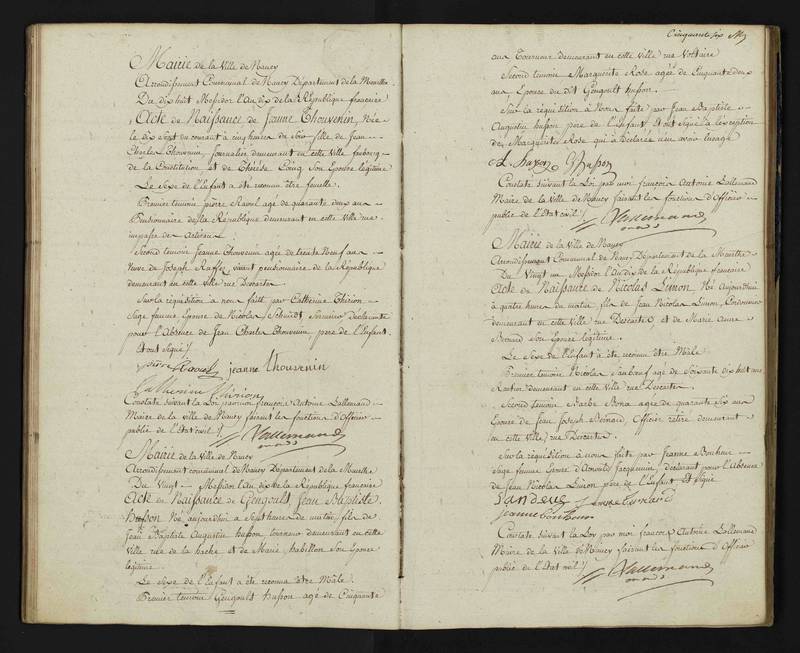 Mairie de la Ville de Nancy
Arrondissement Communal de Nancy Département de la Meurthe
Du dix huit Messidor l'an dix de la République française
Acte de Naissance de Jeanne Thouvenin, Née
le dix sept du courant à cinq heures du soir fille de Jean
Charles Thouvenin, Journalier demeurant en cette Ville faubourg
de la Constitution et de Thérèse Cong son Epouse légitime
Le Sexe de l'Enfant a été reconnu être femelle.
Premier temoin pierre Raoul agé de quarante deux ans
Pensionnaire de la République demeurant en cette Ville rue
impasse
Second temoin Jeanne Thouvenin agée de trente Neuf ans
Veuve de Joseph vivant pensionnaire de la République
demeurant en cette ville rue Descartes
Sur la réquisition à nous faite par Catherine Thirion
Sage femme Epouse de Nicolas Schmidt Serrurier déclarante
pour l'Absence de Jean Charles Thouvenin pere de l'Enfant.
Et ont signé
pierre Raoul jeanne thouvenin
Catherine thirion
Constaté suivant la Loi par moi françois Antoine Lallemand
Maire de la ville de Nancy faisant les fonctions d'Officier
public de l'Etat civil
Lallemand
Mairie de la Ville de Nancy
Arrondissement communal de Nancy Département de la Meurthe
Du Vingt Messidor l'an dix de la République française
Acte de Naissance de Gengoult Jean Baptiste
Husson Né aujourd'hui à Sept heures du matin, fils de
Jean Baptiste Augustin husson tourneur demeurant en cette
Ville rue de la hache et de Marie habillon son Epouse
légitime
Le Sexe de l'Enfant a été reconnu être Mâle.
Premier temoin Gengoult husson agé de Cinquante
Cinquante six
ans Tourneur demeurant en cette Ville rue Voltaire
Second temoin Marguerite Rose agée de Cinquante deux
ans Epouse du dit Gengoult husson.
Sur la réquisition à Nous faite par Jean Baptiste
Augustin husson pere de l'enfant Et ont signé à l'exception
de Marguerite Rose qui a déclaré n'en avoir l'usage
husson G husson
Constaté suivant la Loi par moi françois Antoine Lallemand
Maire de la Ville de Nancy faisant les fonctions d'Officier
public de l'Etat civil
Lallemand
Mairie de la Ville de Nancy
Arrondissement Communal de Nancy Département de la Meurthe
Du Vingt un Messidor l'an dix de la République française
Acte de Naissance de Nicolas Limon Né aujourd'hui
à quatre heures du matin, fils de Jean Nicolas Limon, Cordonnier
demeurant en cette Ville rue Descartes et de Marie Anne
Bernard son Epouse légitime.
Le Sexe de l'Enfant a été reconnu être Mâle
Premier temoin Nicolas agé de Soixante dix huit ans
Rentier demeurant en cette Ville rue Descartes.
Second temoin Barbe Bona agée de quarante six ans
Epouse de Jean Joseph Bernard Officier retiré demeurant
en cette Ville rue Descartes
Sur la réquisition à nous faite par Jeanne Bonheur
Sage femme Epouse d'Arnould Jacquemin, déclarant pour l'Absence
de Jean Nicolas Limon pere de l'Enfant Et signé
jeanne bonheur
Constaté suivant la Loi par moi françois Antoine Lallemand
Maire de la Ville de Nancy faisant les fonctions d'Officier
public de l'Etat civil
Lallemand